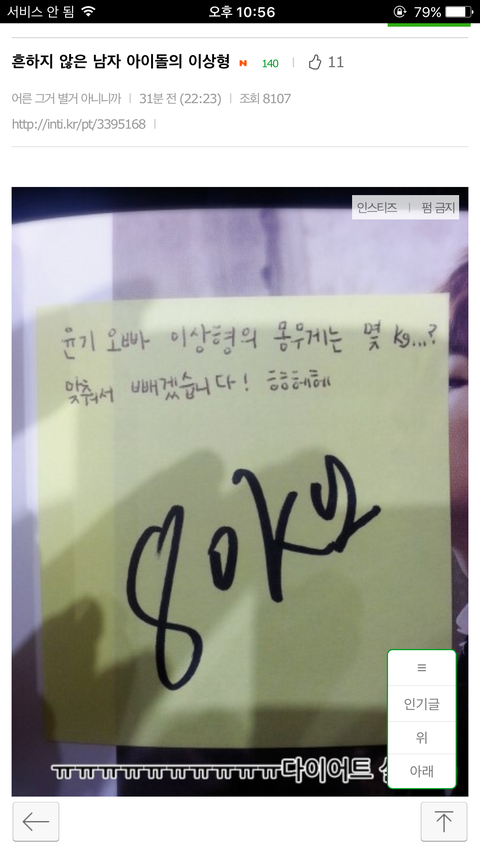 서비스 안 됨 오후 10:56 79%
흔하지 않은 남자 아이돌의 이상형 N 140 | 11
어른 그거 별거 아니니까 | 31분 전 (22:23) | 조회 8107
http://inti.kr/pt/3395168 |
인스티즈 | 펌 금지
윤기 오빠 이상형의 몸무게는 몇 kg...?
맞춰서 빼겠습니다! 흐흐헤헤
80kg
ㅠㅠㅠㅠㅠㅠㅠㅠㅠㅠ다이어트
≡
인기글
위
아래